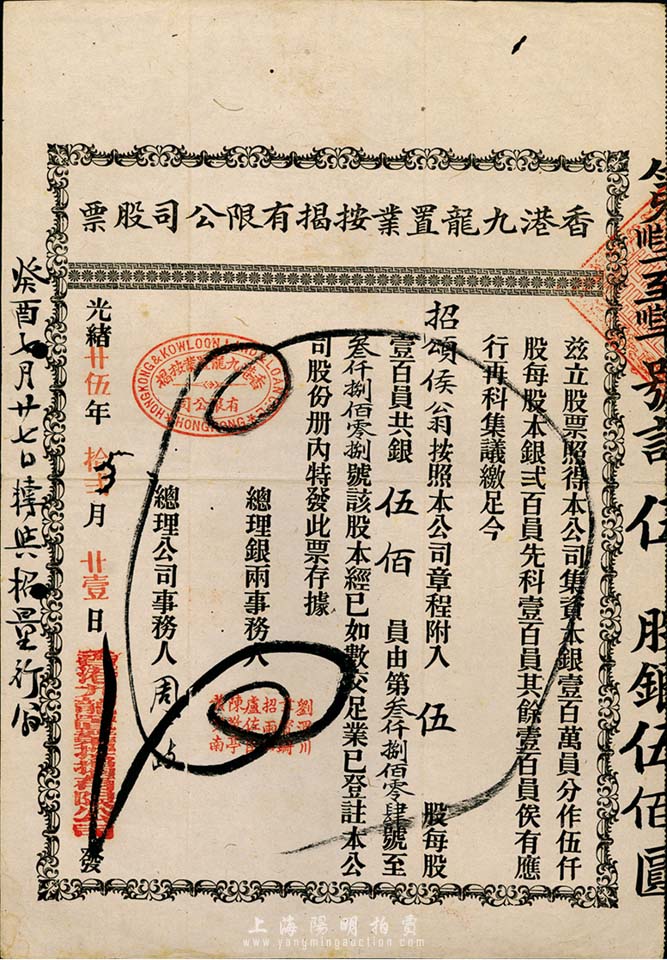 香港九龍置業按揭有限公司股票
號計伍股銀伍佰圓
茲立股票照得本公司集資本銀壹百萬員分作伍仟
股每股本銀弍百員先科壹百員其餘壹百員俟有應
行再科集議繳足今
招頌侯翁按照本公司章程附入伍股每股
壹百員共銀伍佰員由第叁仟捌佰零肆號至
叁仟捌佰零捌號該股本經已如數交足業已登註本公
司股份册內特發此票存據
HONGKONG & KOWLOON LAND & LOAN CO. LD.
HONGKONG
香港九龍置業按揭
有限公司
總理銀兩事務人
劉渭川
招雨田
陳敬亭
總理公司事務人周
光緒廿伍年拾弍月廿壹日
香港九龍置業按揭有限公司
發
癸酉七月廿七日轉與招量行翁
上海陽明拍賣
www.yangmingauction.com